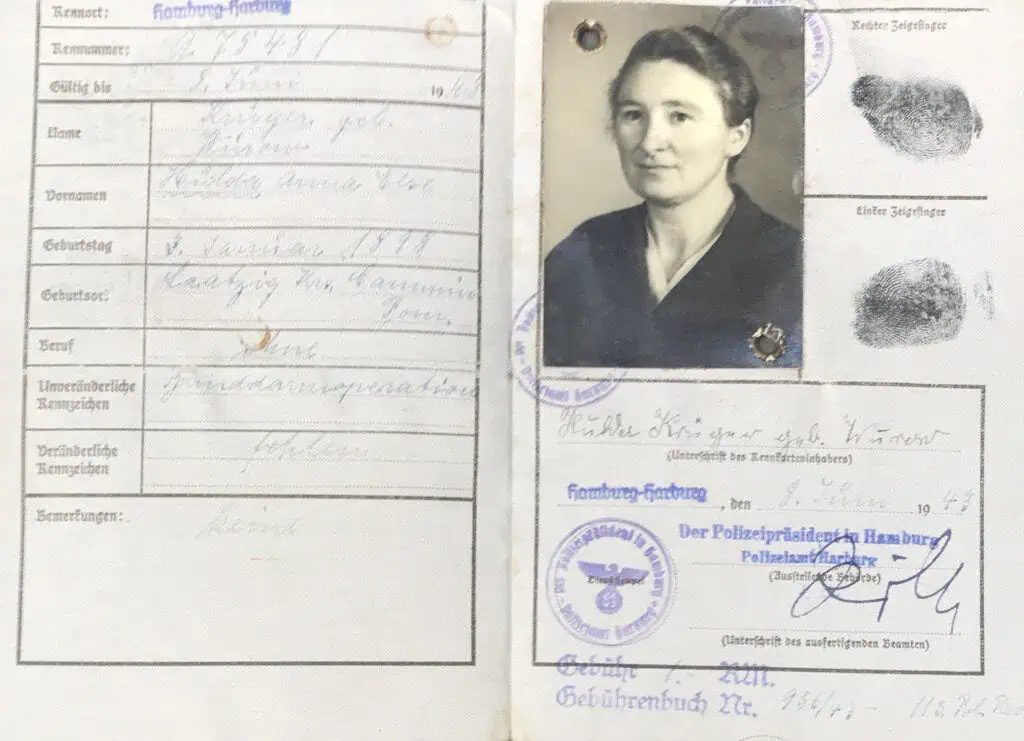 Kennort: Hamburg-Harburg
Kennummer: A 75481
Gültig bis 8. Juni 1948
Name Krüger geb.
Wurow
Vornamen Hulda Anna Else
Geburtstag 3. Januar
Geburtsort: Kr. Cammin
Pom.
Beruf ohne
Unveränderliche Kennzeichen Blinddarmoperation
Veränderliche Kennzeichen fehlen
Bemerkungen: keine
Rechter Zeigefinger
Linker Zeigefinger
Hulda Krüger geb. Wurow
(Unterschrift des Kennkarteninhabers)
Hamburg-Harburg, den 8. Juni 1943
Der Polizeipräsident in Hamburg
Polizeiamt Harburg
(Ausstellende Behörde)
Dienststempel
(Unterschrift des ausfertigenden Beamten)
Gebühr 1.- RM.
Gebührenbuch Nr. 956/43 - 112. Pol. Rev